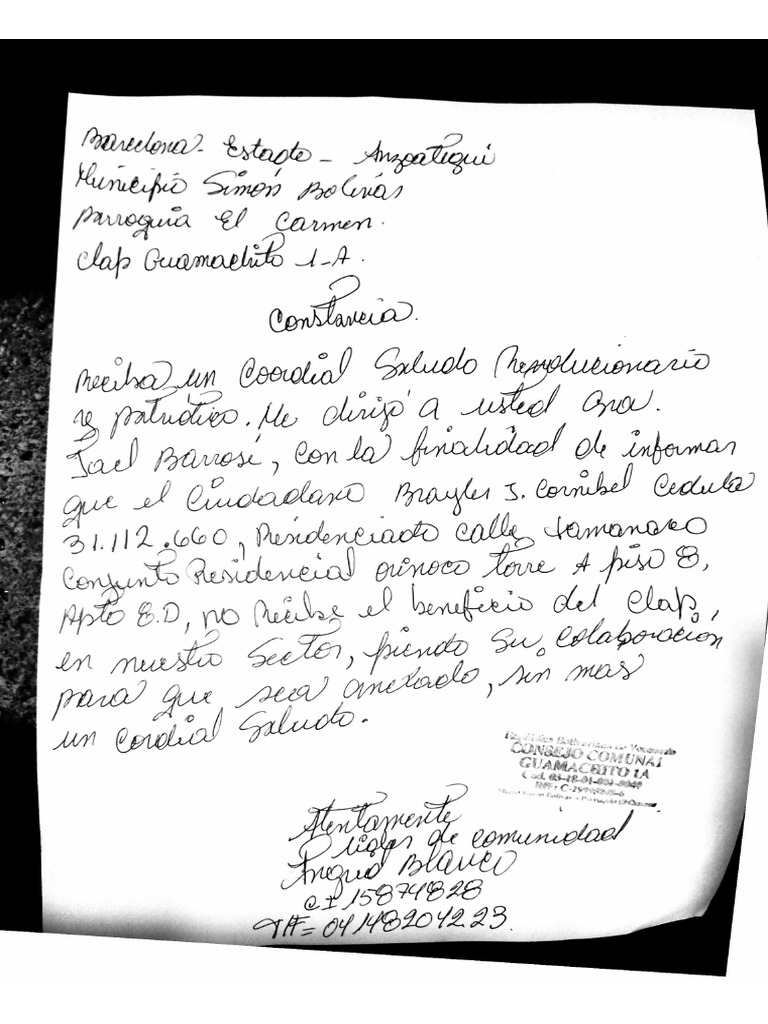 Barcelona - Estado - Anzoategui
Municipio Simón Bolívar
Parroquia El Carmen.
Clap Guamachito 1-A.
Constancia.
Reciba un Coordial Saludo Revolucionario
y patriótico. Me dirijo a usted Gra.
Jael Barrosi, con la finalidad de informar
que el Ciudadano Brayler J. Cornibel Cedula
31.112.660, Residenciado calle tamanaco
Conjunto Residencial orinoco torre A piso 8,
Apto 8.D, no Recibe el beneficio del Clap,
en nuestro Sector, piendo su colaboración
para que sea anexado, sin mas
un Cordial Saludo.
República Bolivariana de Venezuela
CONSEJO COMUNAL
GUAMACHITO 1A
Atentamente
lider de comunidad
Ingrid Blanco
C.I 15874828
Tlf = 04148204223.